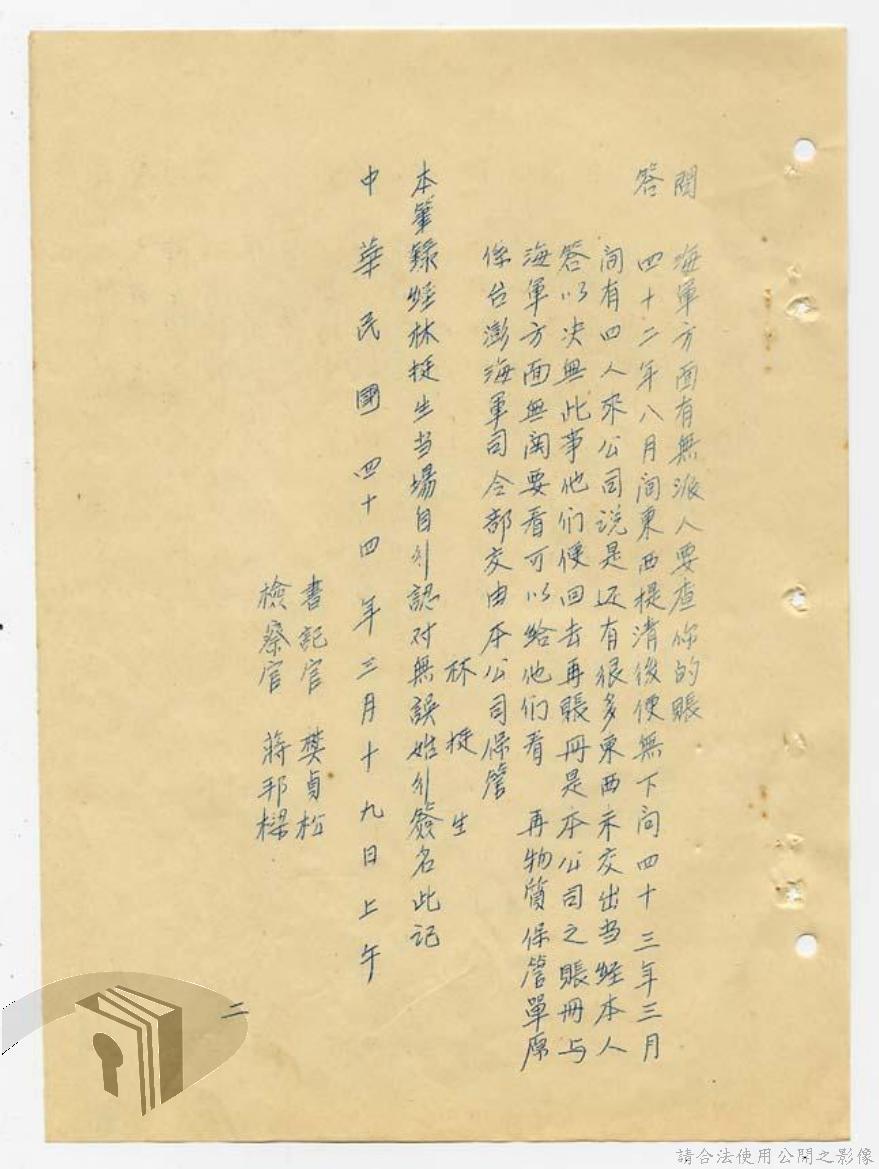 問　海軍方面有無派人要查你的賬
答　四十二年八月间東西提清後便無下问四十三年三月
间有四人來公司说是还有很多東西未交出当經本人
答以决無此事他们便回去再賬冊是本公司之賬冊与
海軍方面無関要看可以给他们看　再物質保管單原
係台澎海軍司令部交由本公司保管
林挺生
本筆錄經林挺生当場自行認对無誤始行簽名此记
中華民國四十四年三月十九日上午
書記官　樊貞松
檢察官　蔣邦樑
二
請合法使用公開之影像